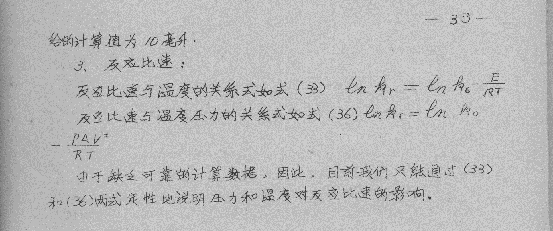 — 30 —
给的计算值为10毫升.
3、反应比速：
反应比速与温度的关系式如式(33) ln kr = ln k0 E/RT
反应比速与温度压力的关系式如式(36) ln kr = ln k0
- PΔV‡/RT
由于缺乏可靠的计算数据，因此，目前我们只能通过(33)
和(36)两式定性地说明压力和温度对反应比速的影响。